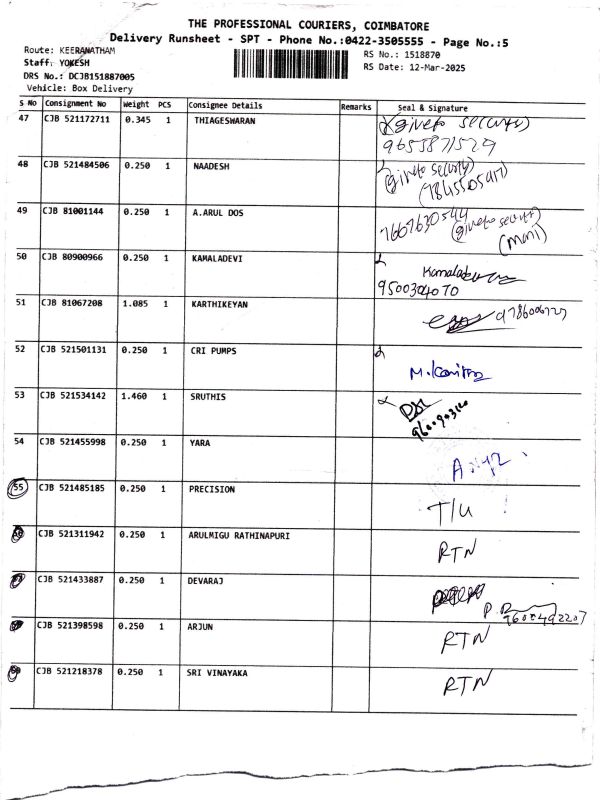 THE PROFESSIONAL COURIERS, COIMBATORE
Delivery Runsheet - SPT - Phone No.:0422-3505555 - Page No.:5
Route: KEERANATHAM
Staff: YOKESH
DRS No.: DCJB151887005
Vehicle: Box Delivery
RS No.: 1518870
RS Date: 12-Mar-2025
S No Consignment No Weight PCS Consignee Details Remarks Seal & Signature
47 CJB 521172711 0.345 1 THIAGESWARAN (giveto security)
9655871529
48 CJB 521484506 0.250 1 NAADESH (giveto security)
49 CJB 81001144 0.250 1 A.ARUL DOS 7667630544 (giveto security)
(mani)
50 CJB 80900966 0.250 1 KAMALADEVI Kamaladevi
9500304070
51 CJB 81067208 1.085 1 KARTHIKEYAN
52 CJB 521501131 0.250 1 CRI PUMPS
53 CJB 521534142 1.460 1 SRUTHIS
54 CJB 521455998 0.250 1 YARA
55 CJB 521485185 0.250 1 PRECISION T/U
CJB 521311942 0.250 1 ARULMIGU RATHINAPURI RTN
CJB 521433887 0.250 1 DEVARAJ
9600492207
CJB 521398598 0.250 1 ARJUN RTN
CJB 521218378 0.250 1 SRI VINAYAKA RTN